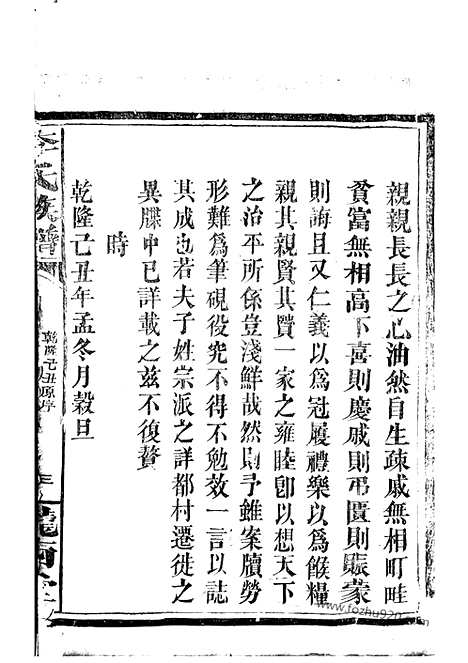 親親長長之心油然自生疎戚無相町畦
貧富無相高下喜則慶戚則弔匱則賑蒙
則誨且又仁義以爲冠履禮樂以爲餱糧
親其親賢其賢一家之雍睦卽以想天下
之治平所係豈淺鮮哉然則予雖案牘勞
形難爲筆硯役究不得不勉效一言以誌
其成也若夫子姓宗派之詳都村遷徙之
異牒中已詳載之茲不復贅
時
乾隆己丑年孟冬月穀旦
李氏族譜
乾隆己丑原序
隴西堂
www.fozhu920.com